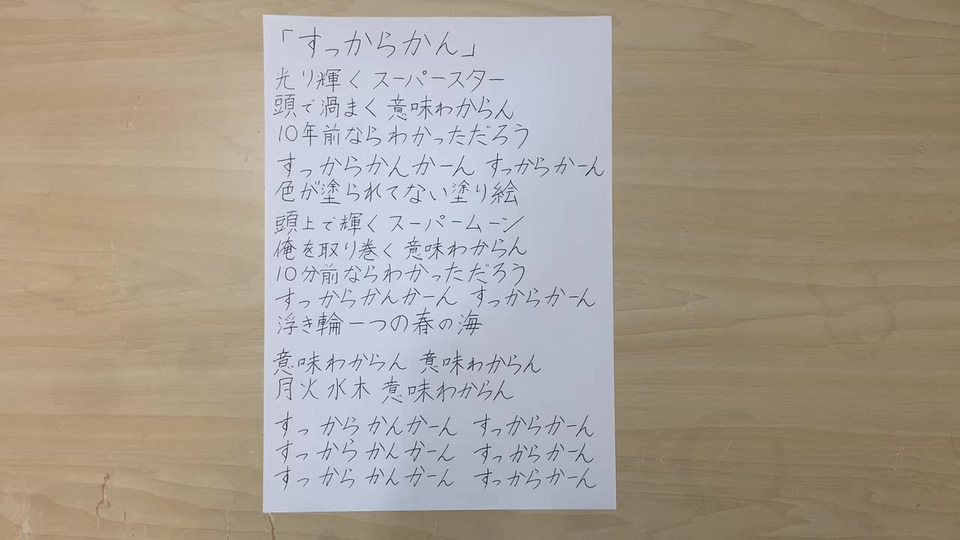 「すっからかん」
光り輝く スーパースター
頭で渦まく 意味わからん
10年前ならわかっただろう
すっからかんかーん すっからかーん
色が塗られてない塗り絵
頭上で輝く スーパームーン
俺を取り巻く 意味わからん
10分前ならわかっただろう
すっからかんかーん すっからかーん
浮き輪一つの春の海
意味わからん 意味わからん
月火水木 意味わからん
すっからかんかーん すっからかーん
すっからかんかーん すっからかーん
すっからかんかーん すっからかーん